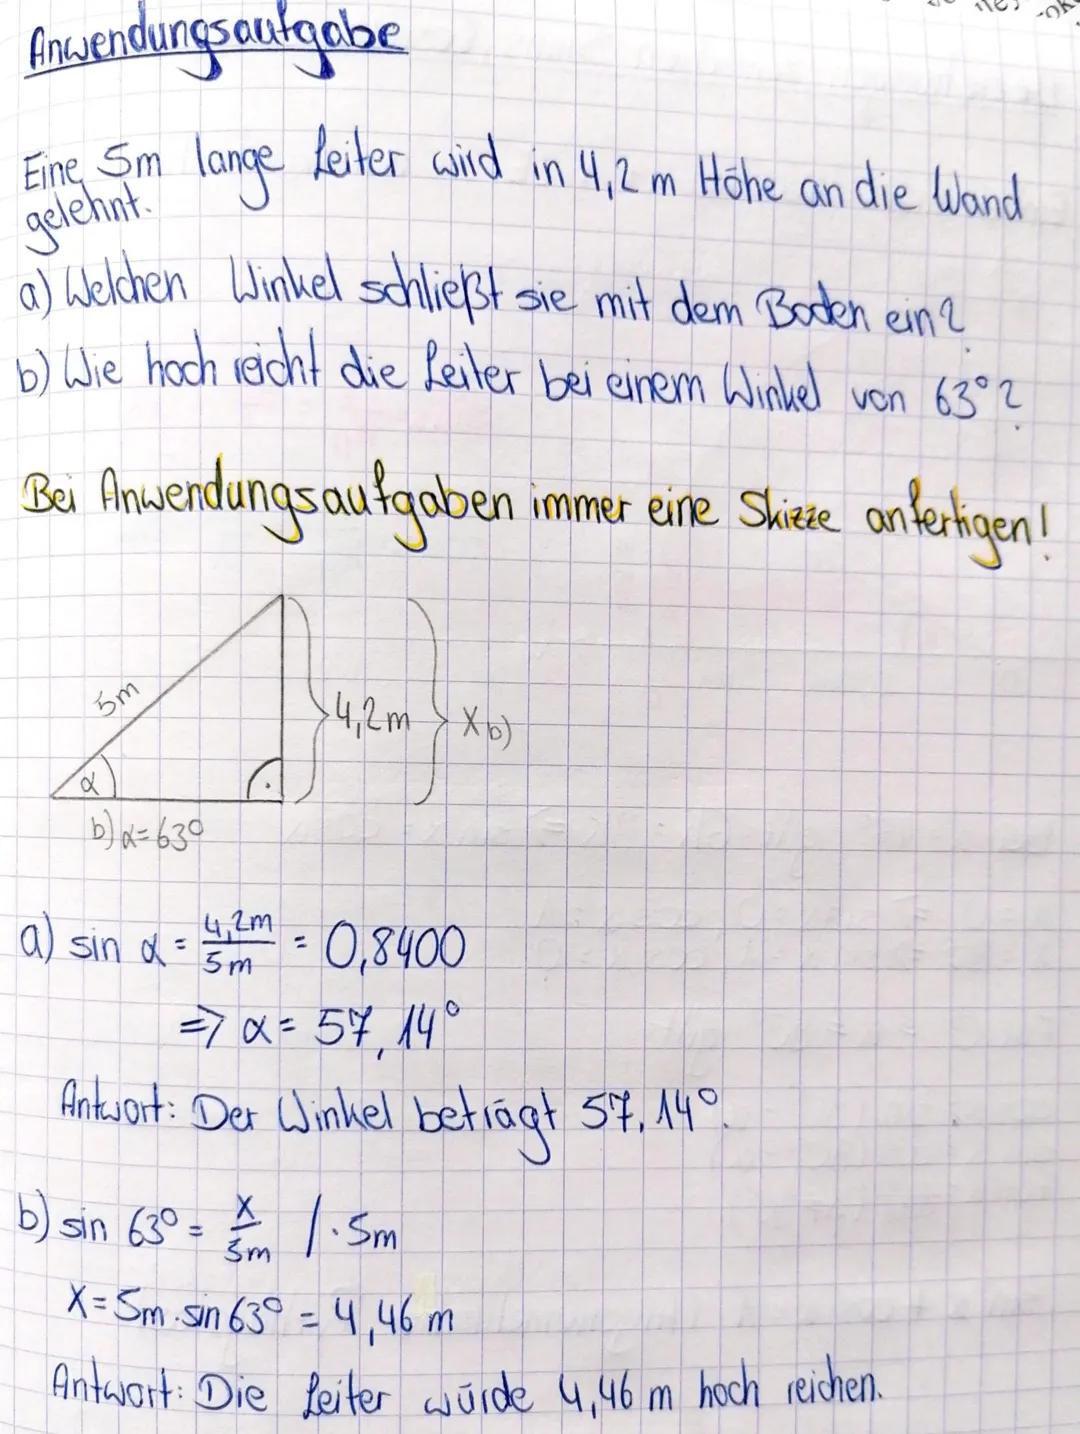 Anwendungsaufgabe
Eine 5m lange Leiter wird in 4,2 m Höhe an die Wand
gelehnt.
a) Welchen Winkel schließt sie mit dem Boden ein?
b) Wie hoch reicht die Leiter bei einem Winkel von 63°?
Bei Anwendungsaufgaben immer eine Skizze anfertigen!
5m
4,2m
x b)
α
b) α=63°
a) sin α = 4,2m/5m = 0,8400
=> α = 57,14°
Antwort: Der Winkel beträgt 57,14°.
b) sin 63° = x/5m /·5m
x=5m·sin 63° = 4,46 m
Antwort: Die Leiter würde 4,46 m hoch reichen.